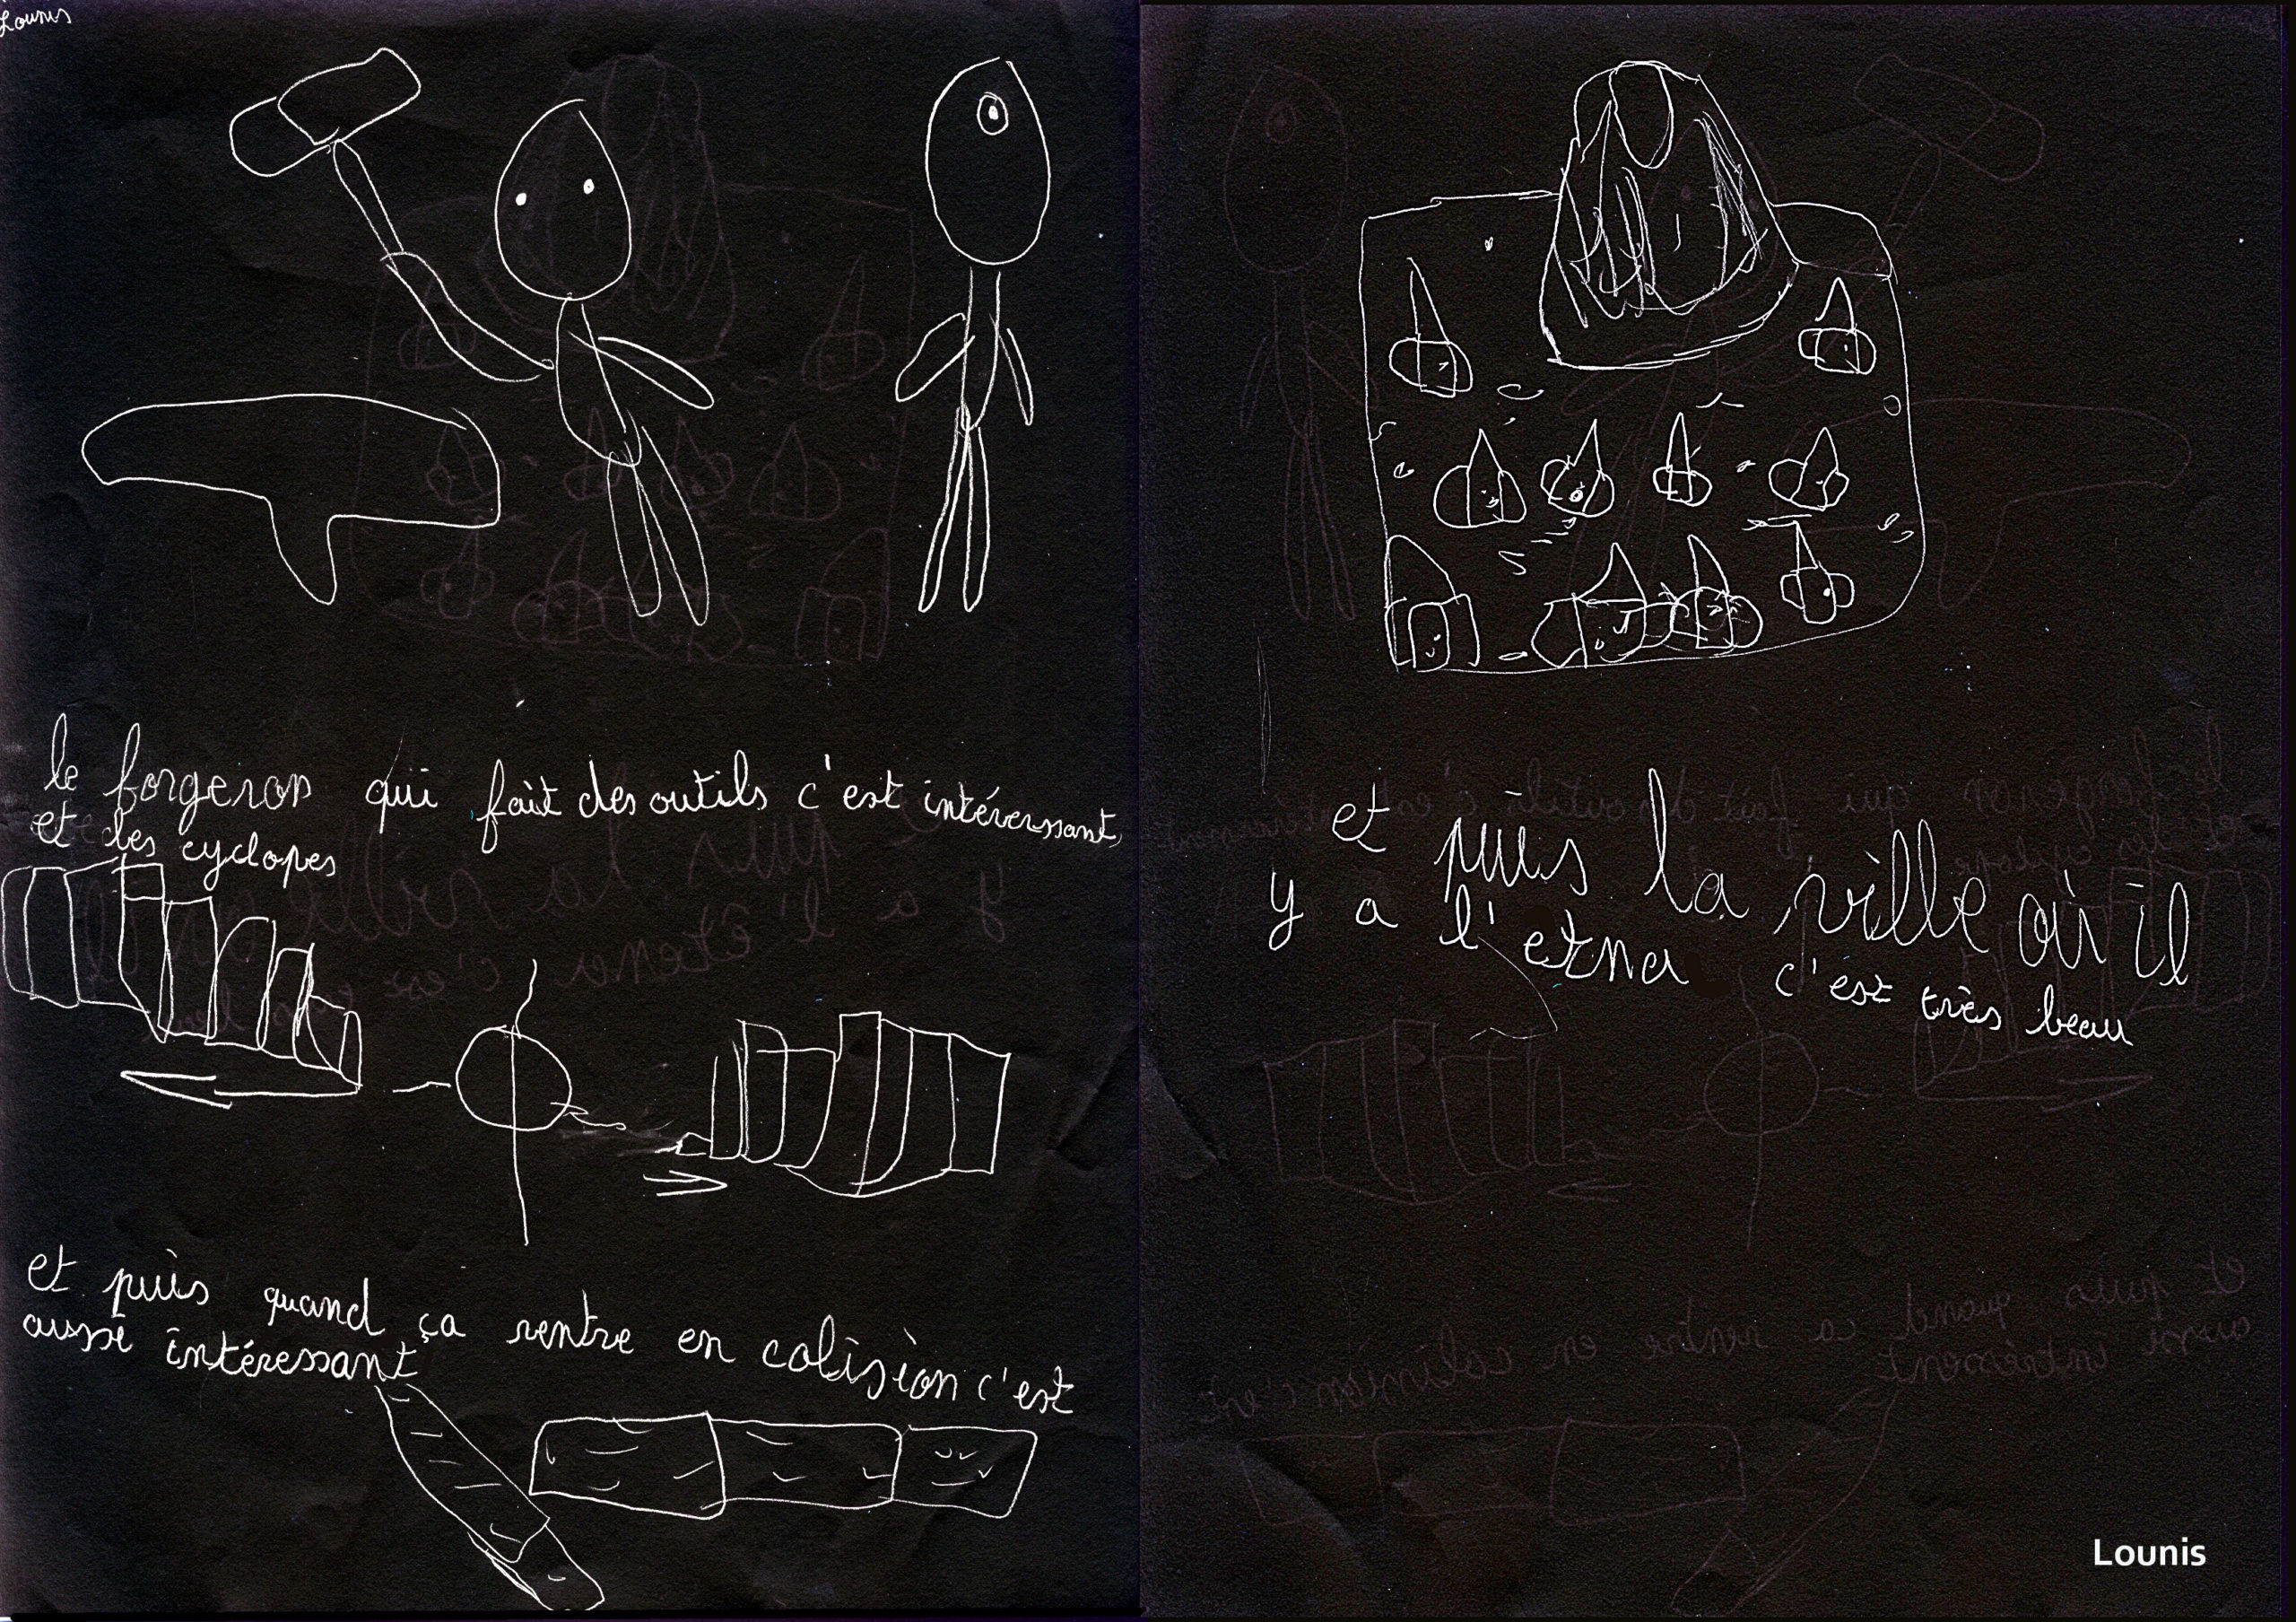 Lounis
le forgeron qui fait des outils c'est intéressant,
et des cyclopes
et puis quand ça rentre en colision c'est
aussi intéressant
et puis la ville où il
y a l'etna c'est très beau
Lounis